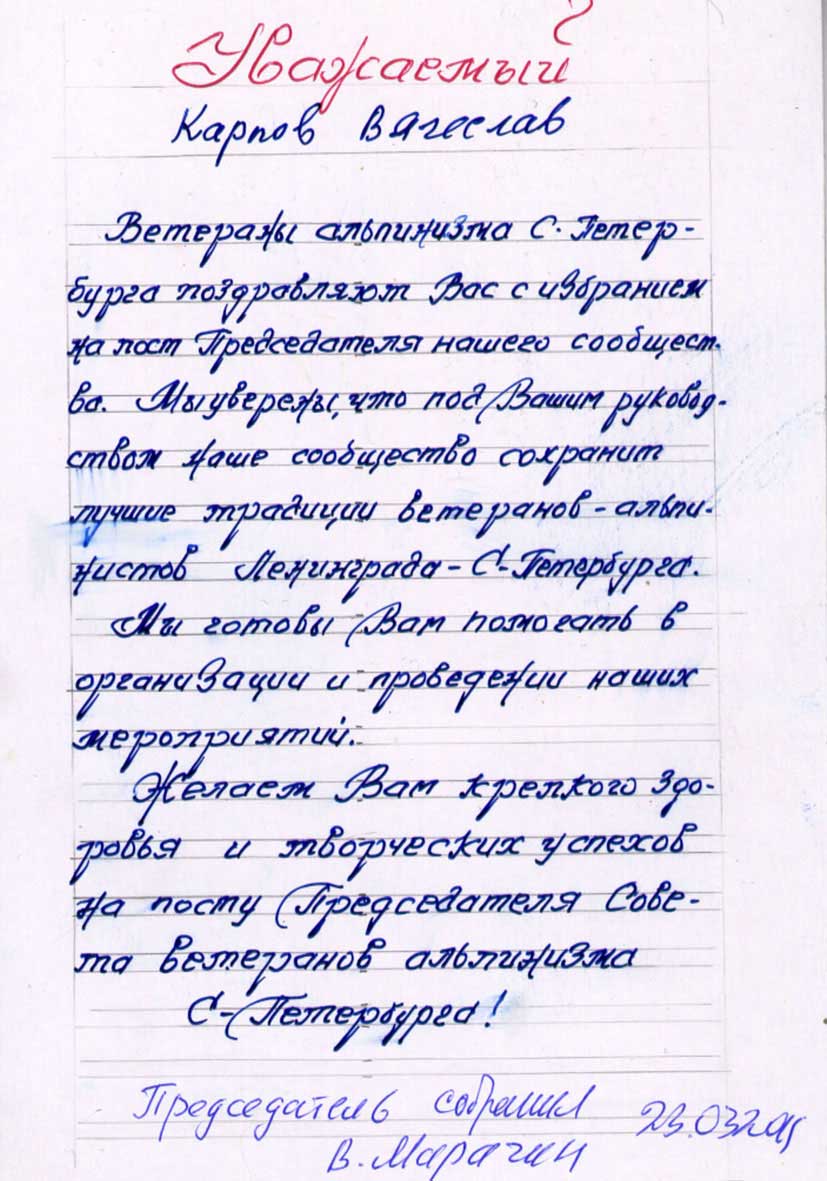 Уважаемый
Карпов Вячеслав
Ветераны альпинизма С.Петер-
бурга поздравляют Вас с избранием
на пост Председателя нашего сообщест-
ва. Мы уверены, что под Вашим руковод-
ством наше сообщество сохранит
лучшие традиции ветеранов-альпи-
нистов Ленинграда-С-Петербурга.
Мы готовы Вам помогать в
организации и проведении наших
мероприятий.
Желаем Вам крепкого здо-
ровья и творческих успехов
на посту Председателя Сове-
та ветеранов альпинизма
С-Петербурга!
Председатель собрания
В.